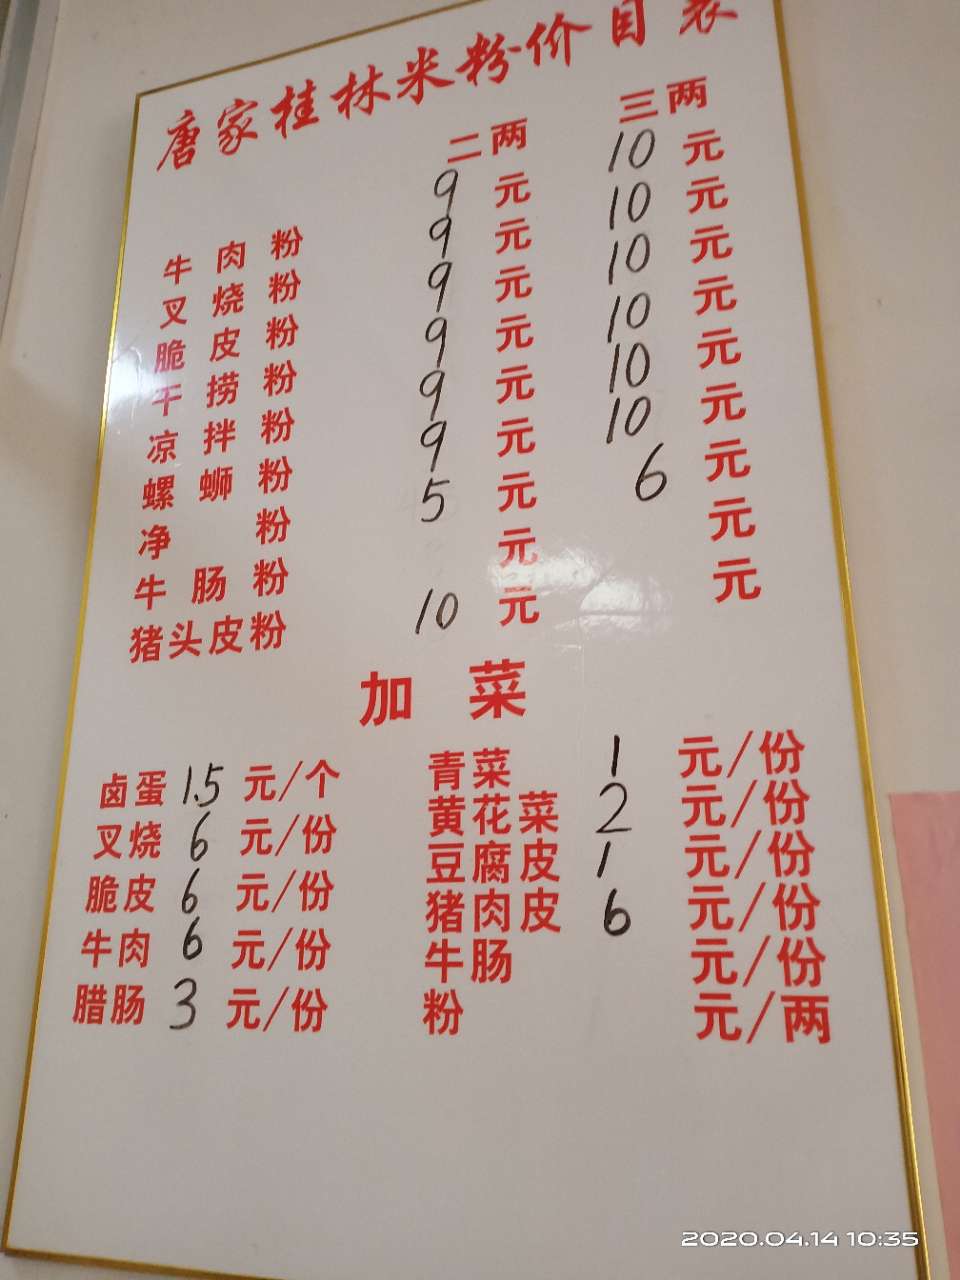 唐家桂林米粉价目表
二两 三两
牛肉粉 9元 10元
叉烧粉 9元 10元
脆皮粉 9元 10元
干捞粉 9元 10元
凉拌粉 9元 10元
螺蛳粉 9元 10元
净粉 5元 6元
牛肠粉 元 元
猪头皮粉 10元 元
加菜
卤蛋 1.5元/个 青菜 1元/份
叉烧 6元/份 黄花菜 2元/份
脆皮 6元/份 豆腐皮 1元/份
牛肉 6元/份 猪肉皮 6元/份
腊肠 3元/份 牛肠 元/份
粉 元/两
2020.04.14 10:35